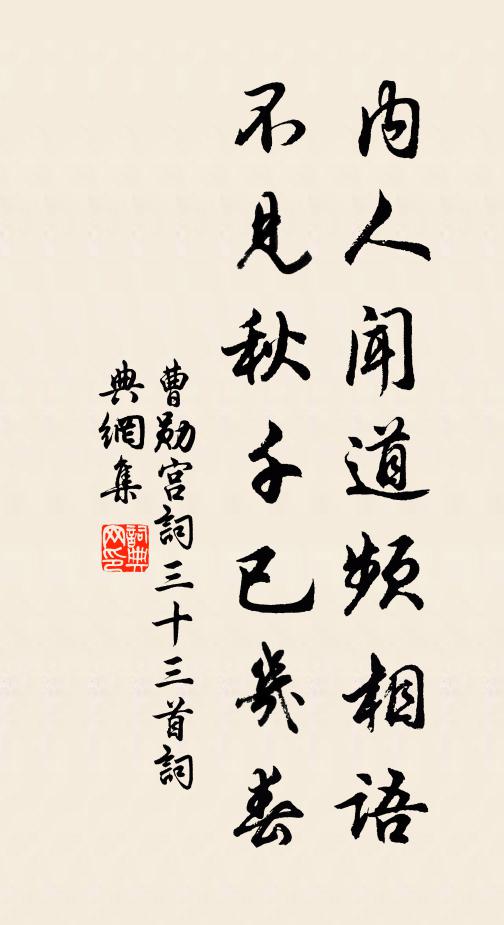 内人闻道频相语
不见秋千已几春
曹勋宫词三十三首词
典網集
詞典網印